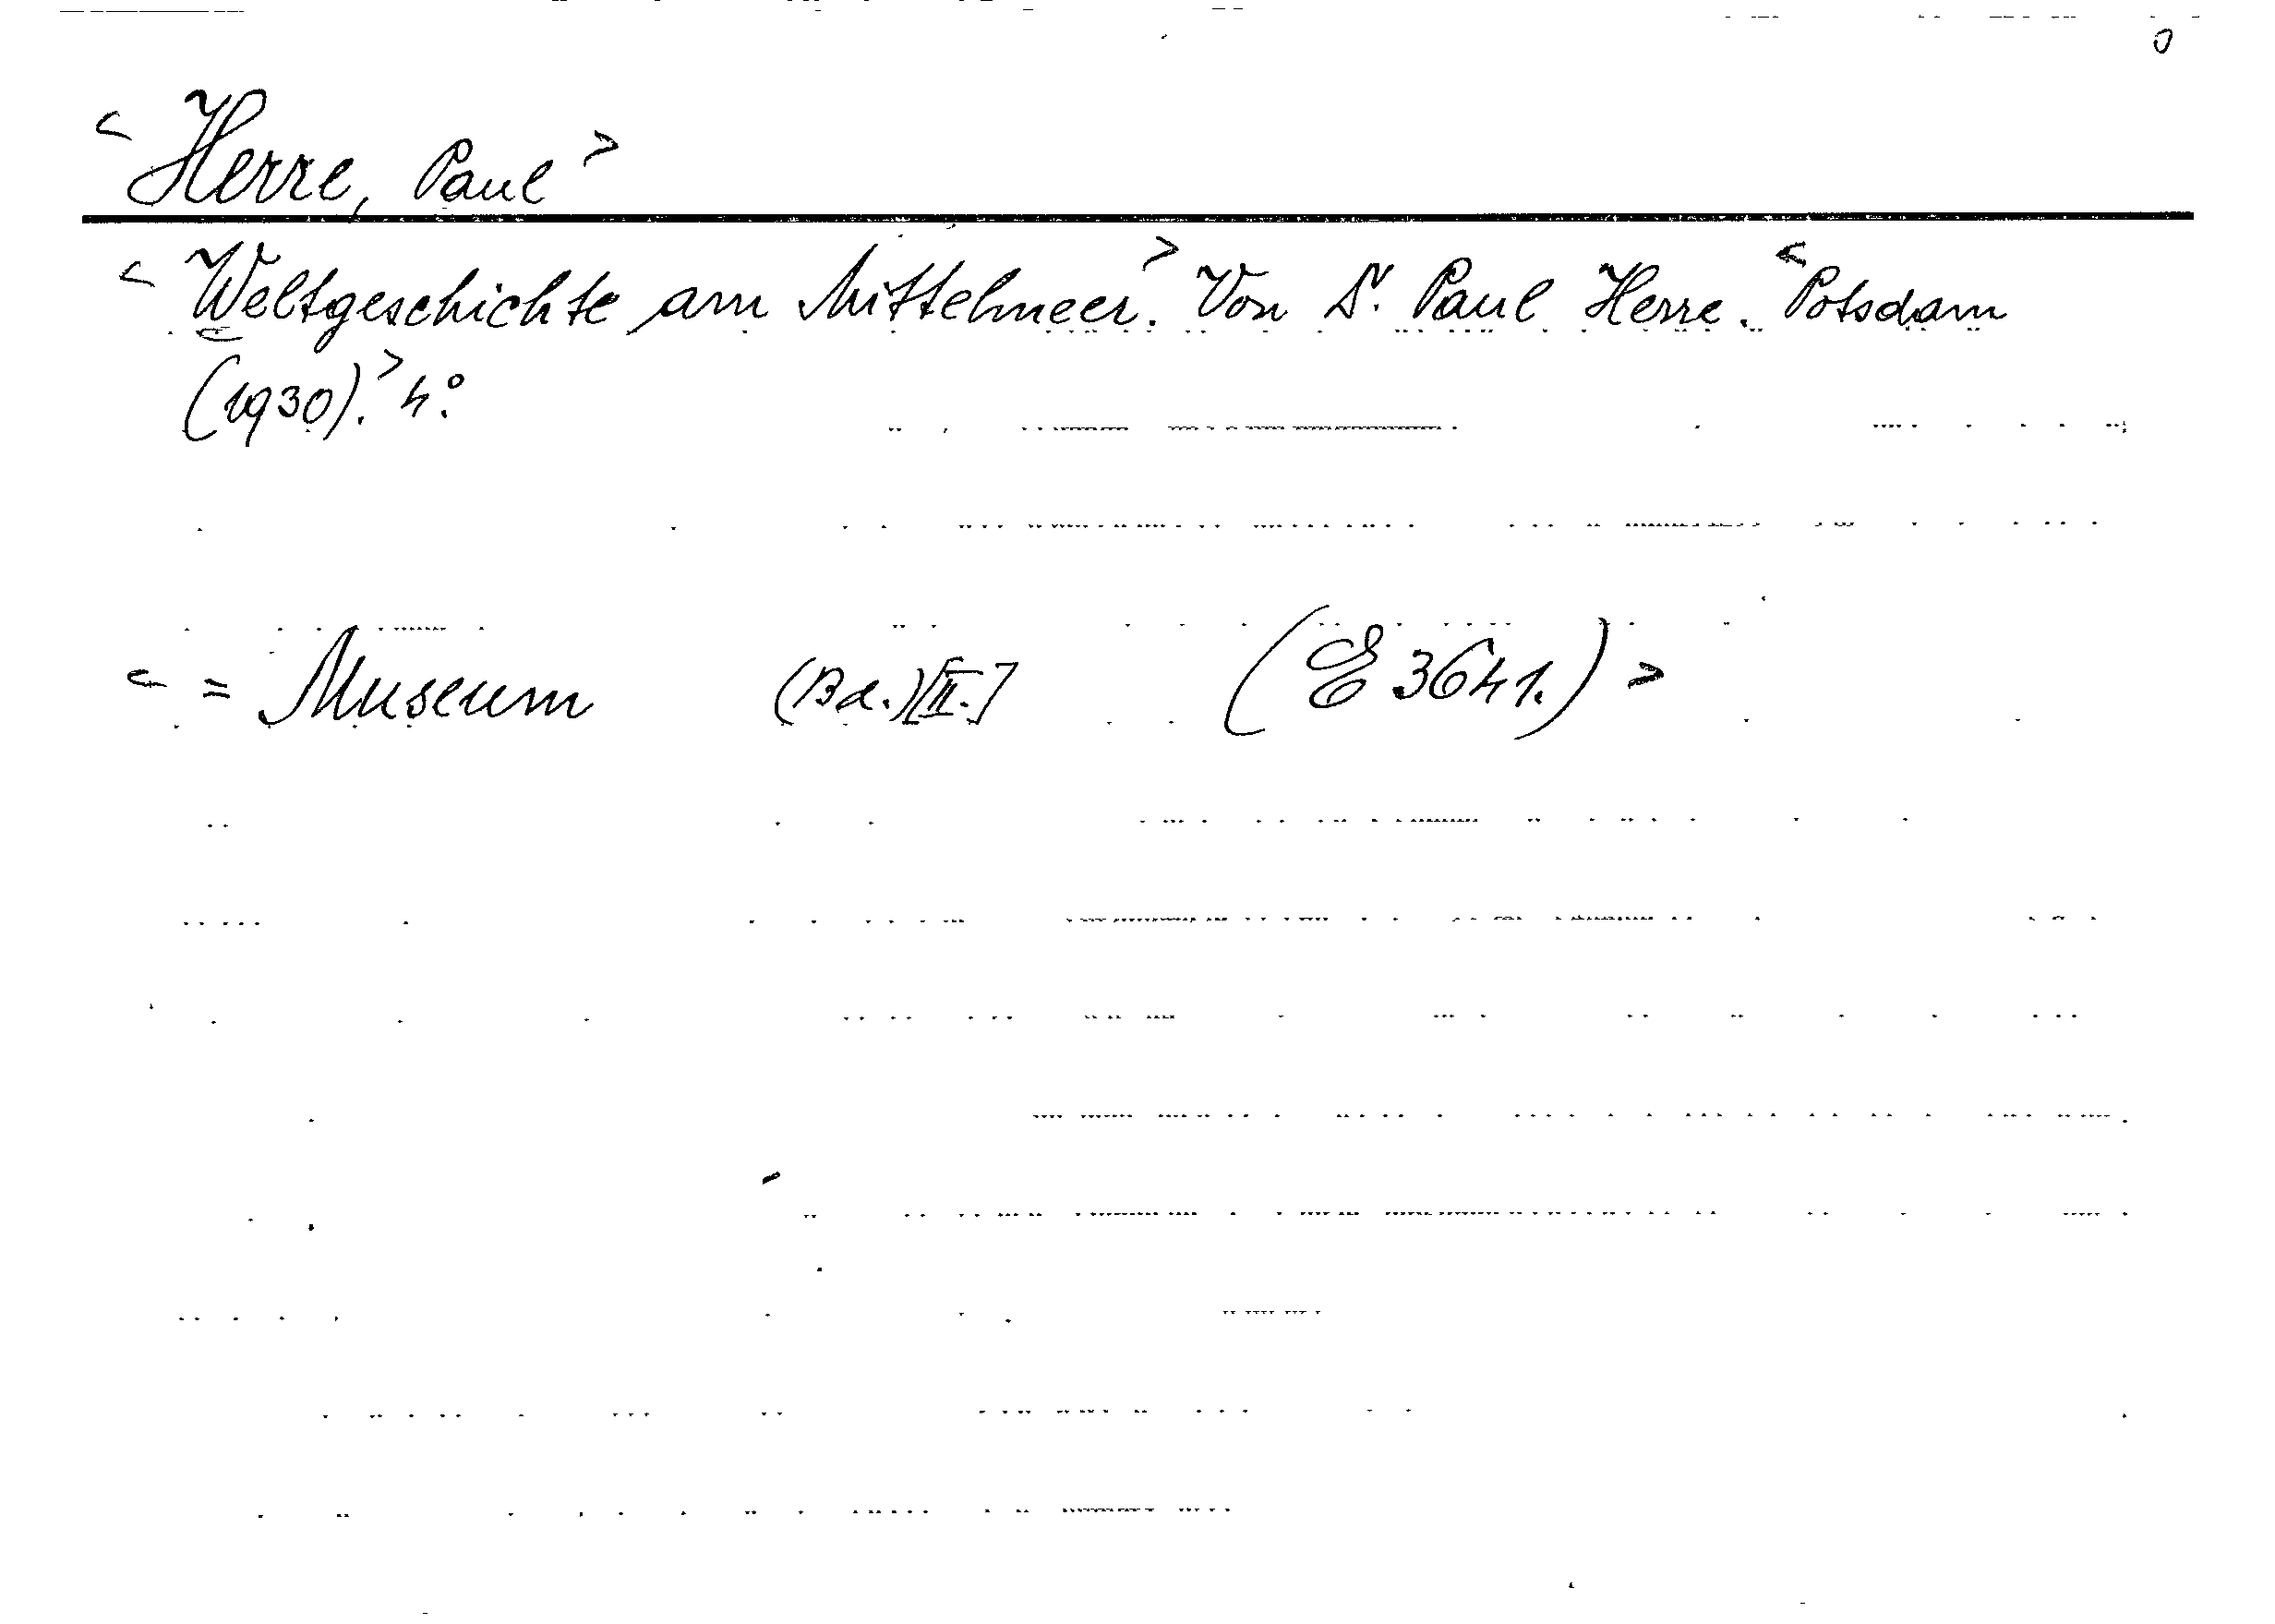 0
< Herre, Paul >
< Weltgeschichte am Mittelmeer. > Von Dr. Paul Herre. < Potsdam
(1930). > 4°.
< = Museum (Bd.)[II.] (E 3641.) >